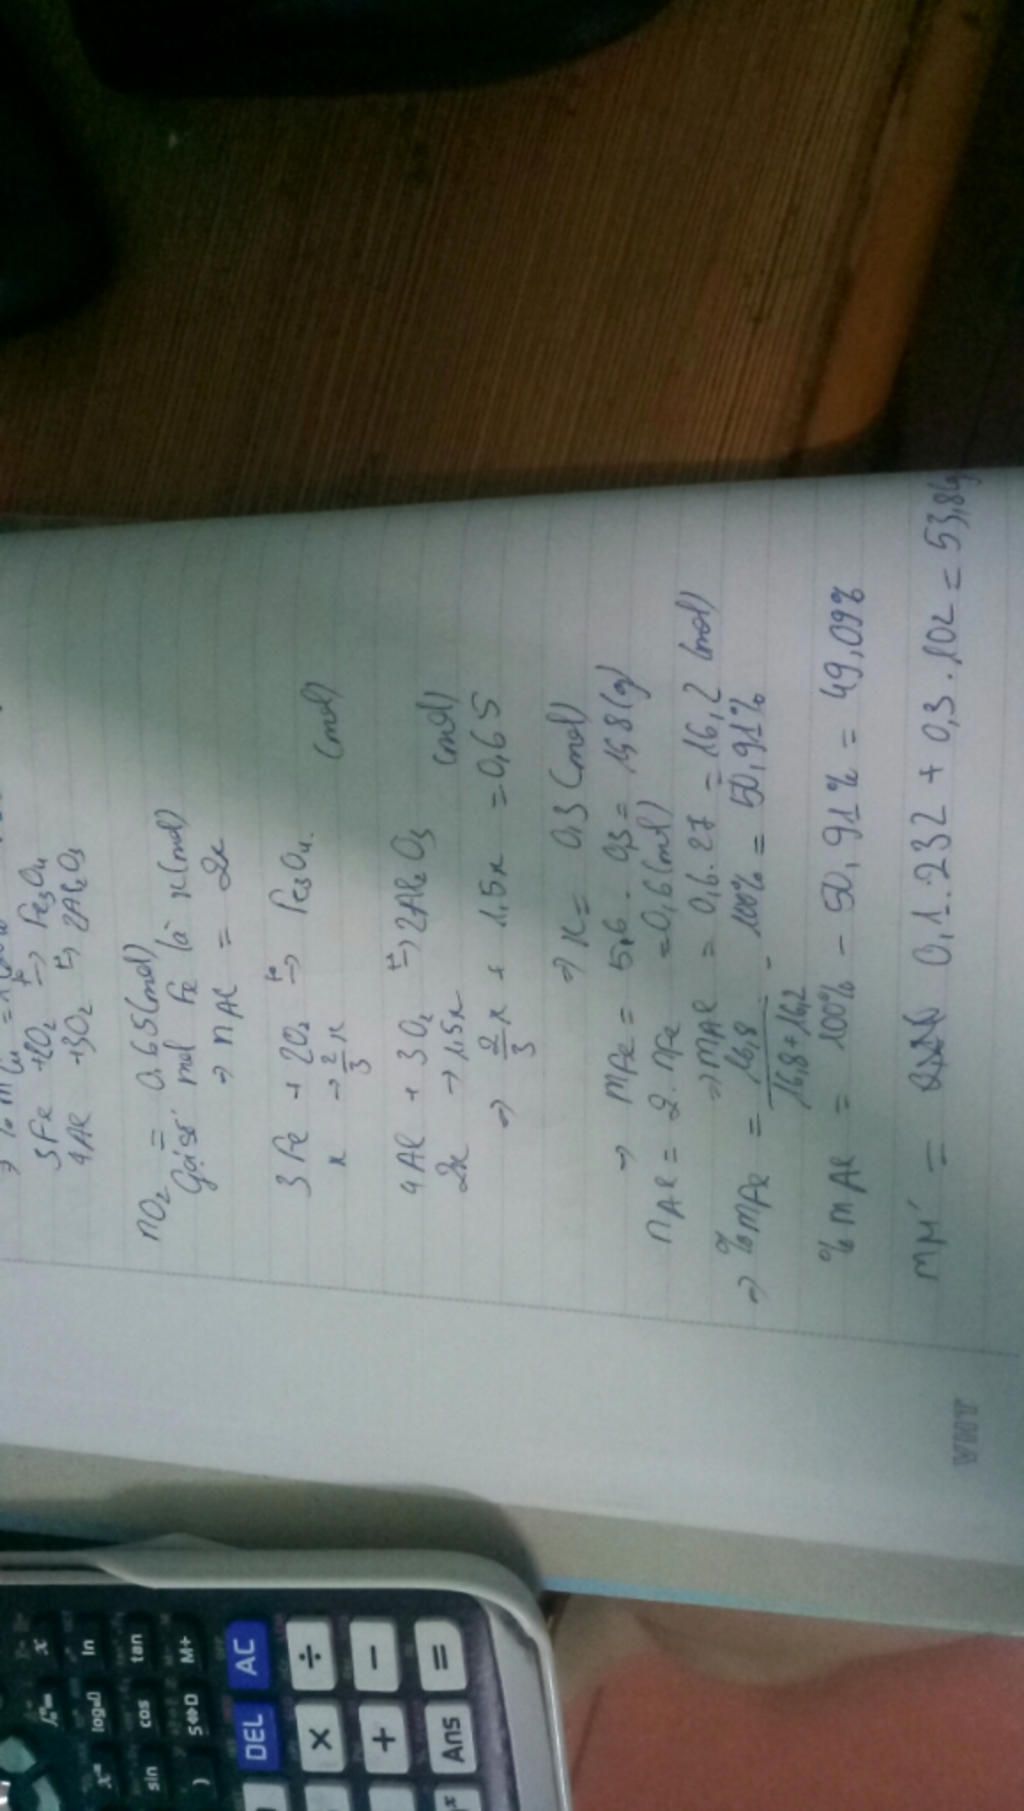 3Fe + 2O₂ →(t°) Fe₃O₄
4Al + 3O₂ →(t°) 2Al₂O₃
nO₂ = 0,65 (mol)
Gọi số mol Fe là x (mol)
⇒ nAl = 2x
3Fe + 2O₂ →(t°) Fe₃O₄
x → 2/3 x (mol)
4Al + 3O₂ →(t°) 2Al₂O₃
2x → 1,5x (mol)
⇒ 2/3 x + 1,5x = 0,65
⇒ x = 0,3 (mol)
⇒ mFe = 56 . 0,3 = 16,8 (g)
nAl = 2. nFe = 0,6 (mol)
⇒ mAl = 0,6 . 27 = 16,2 (mol)
⇒ %mFe = 16,8 / (16,8 + 16,2) . 100% = 50,91%
%mAl = 100% - 50,91% = 49,09%
mM' = 0,1.232 + 0,3.102 = 53,8(g
VHHT
x
ln
log
tan
cos
sin
M+
S⇔D
)
AC
DEL
÷
×
−
+
=
Ans